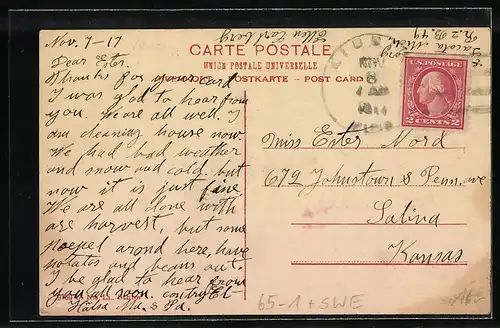 Nov. 7-17
Dear Ester.
Thanks for your card
I was glad to hear from
you. We are all well. I
am cleaning house now
We had bad weather
and snow and cold. but
now it is just fine.
We are all done with
are harvest, but some
poepel arond here, have
potatos and beans out.
I be glad to hear from
you all soon.
Ellen Carlberg
R. 2 B. 49
CARTE POSTALE
UNION POSTALE UNIVERSELLE
POSTKARTE - POST CARD
NOV
8
U.S. POSTAGE
2 CENTS 2
Miss Ester Nord
679 Johnstown & Penn. ave
Salina
Kansas
65-1 + SWE